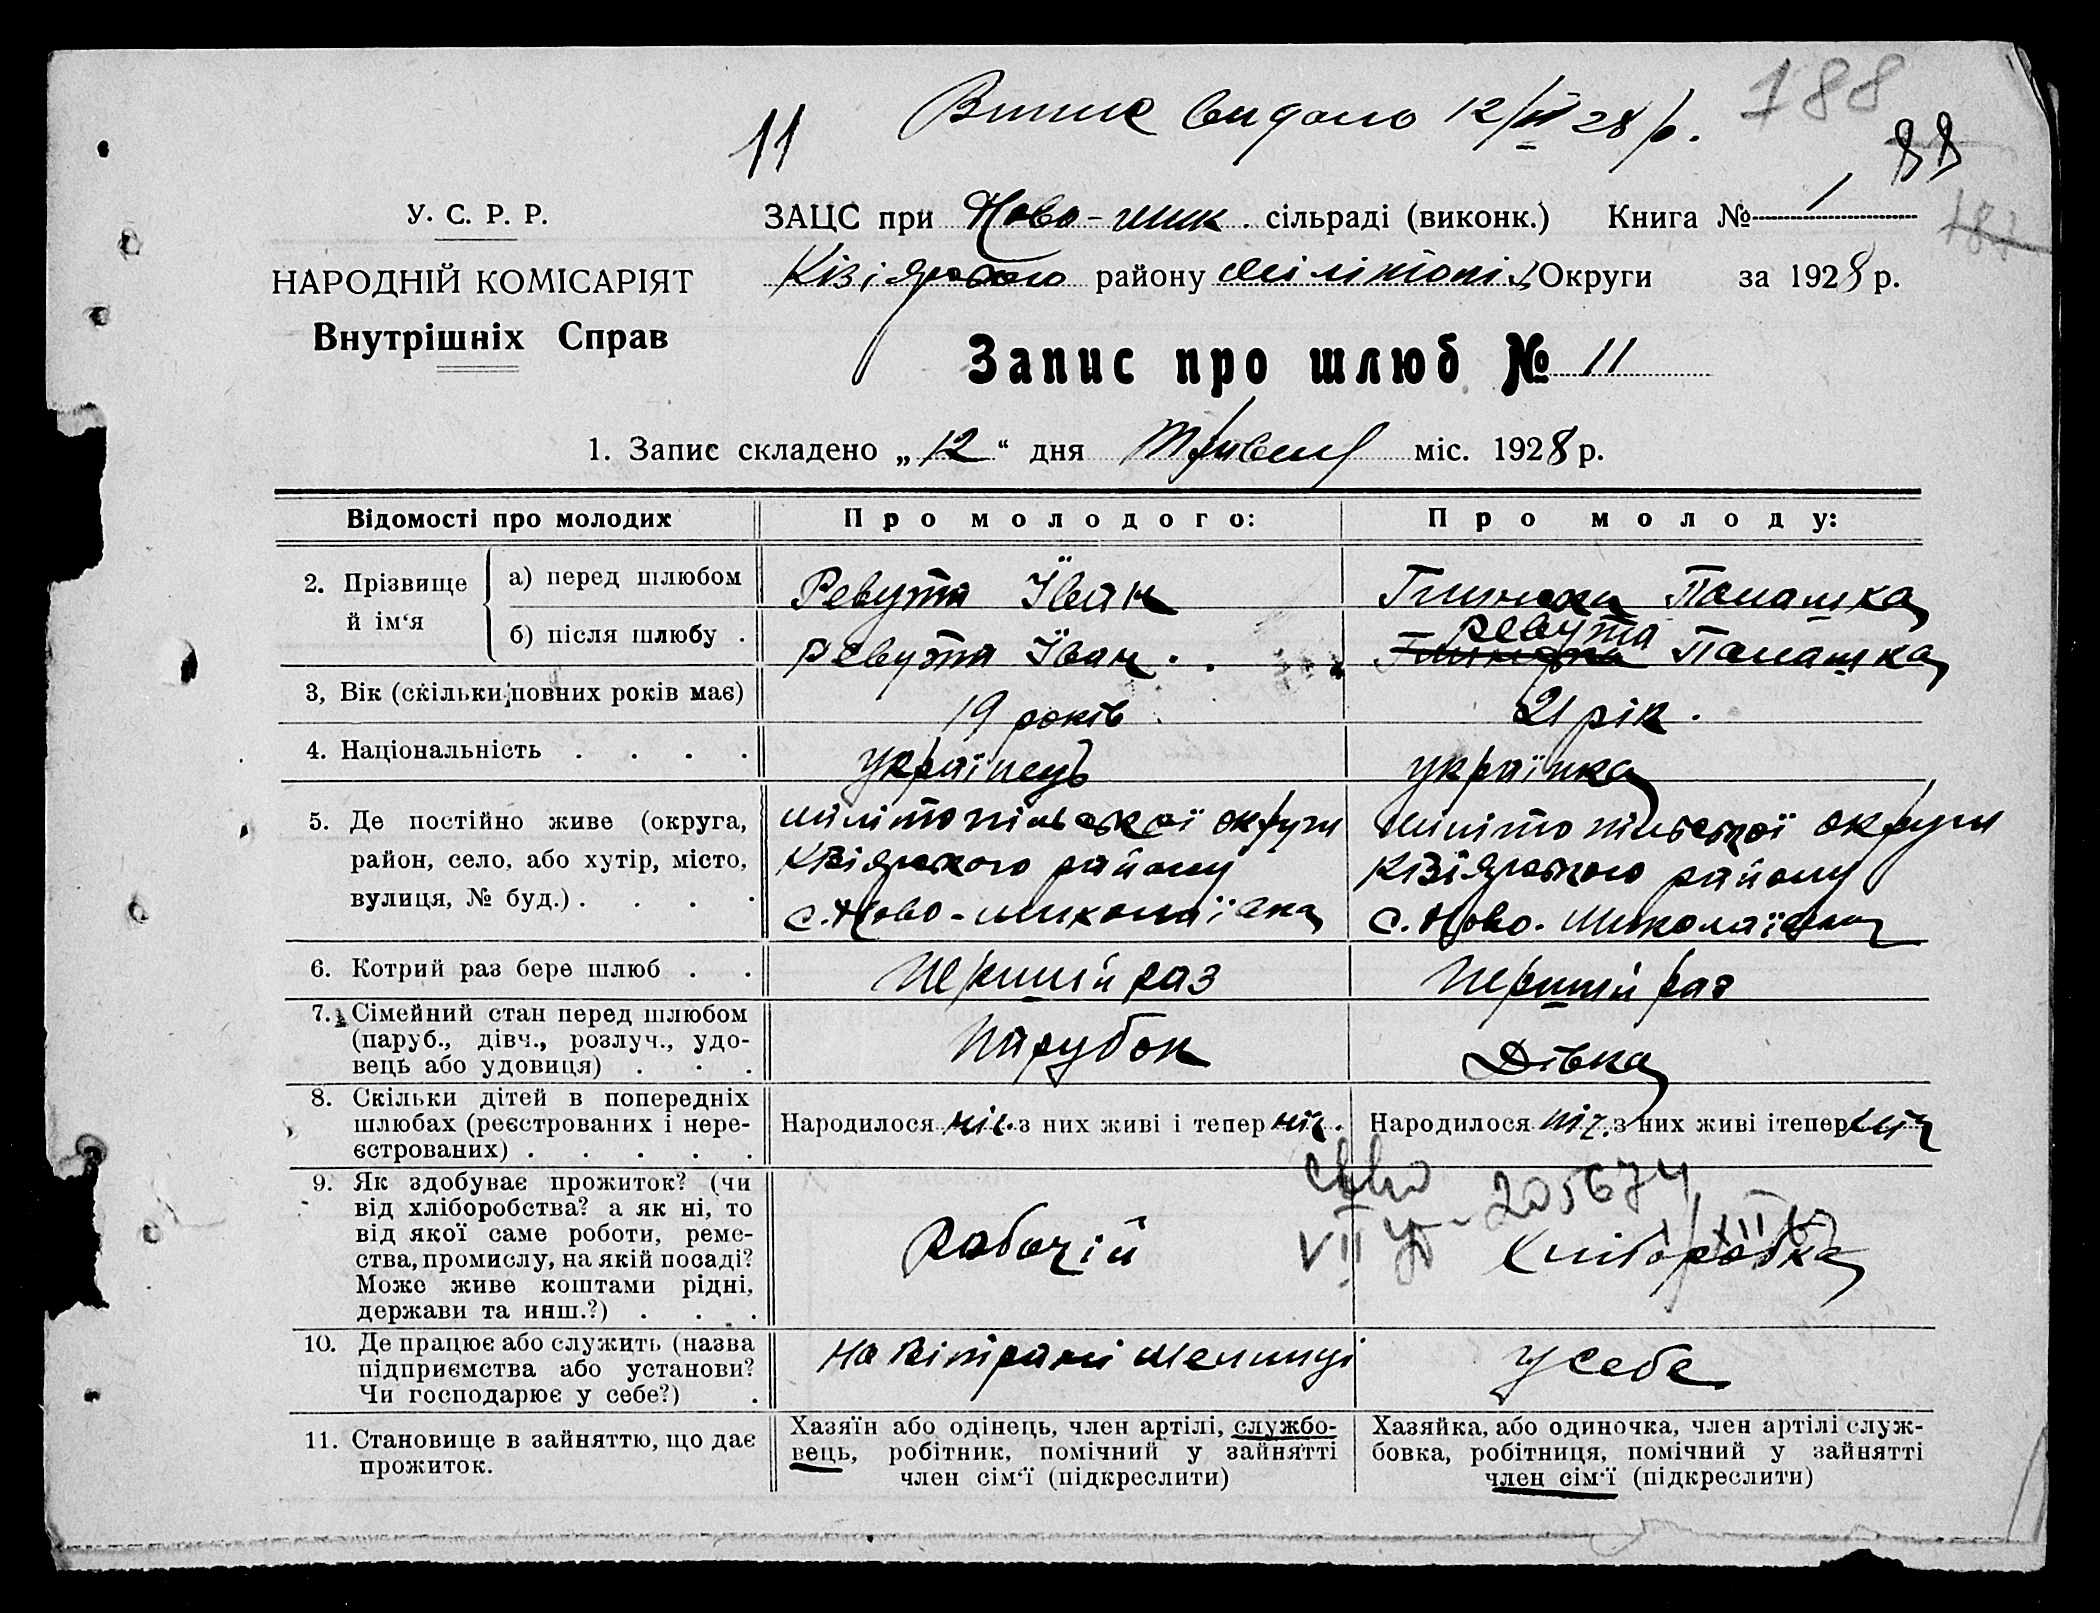 188
11 Витяг видано 12/III 28 р.
88
У. С. Р. Р.
ЗАЦС при Ново-мик. сільраді (виконк.) Книга № 1
187
НАРОДНІЙ КОМІСАРІЯТ
Кізіярського району Мілітопіл. Округи за 1928 р.
Внутрішніх Справ
Запис про шлюб № 11
1. Запис складено „12“ дня Травня міс. 1928 р.
Відомості про молодих
Про молодого:
Про молоду:
2. Прізвище й ім‘я
а) перед шлюбом
Ревута Їван
Панашка
б) після шлюбу .
Ревута Їван.
Ревута Панашка
3, Вік (скільки повних років має)
19 років
21 рік.
4. Національність . . . .
українець
українка
5. Де постійно живе (округа,
район, село, або хутір, місто,
вулиця, № буд.) . . . .
мілітопільської округи
Кізіярського району
с. Ново-миколаївка
мілітопільської округи
Кізіярського району
с. Ново. Миколаївка
6. Котрий раз бере шлюб . .
перший раз
перший раз
7. Сімейний стан перед шлюбом
(паруб., дівч., розлуч., удо-
вець або удовиця) . . .
парубок
Дівка
8. Скільки дітей в попередніх
шлюбах (реєстрованих і нере-
єстрованих) . . . . .
Народилося ніс. з них живі і тепер ніс.
Народилося ніс. з них живі ітепер ніс
9. Як здобуває прожиток? (чи
від хліборобства? а як ні, то
від якої саме роботи, реме-
ства, промислу, на якій посаді?
Може живе коштами рідні,
держави та инш.?) . . .
Рабочій
VII 205674
Хліборобка
10. Де працює або служить (назва
підприємства або установи?
Чи господарює у себе?) .
На вітряні мелниці
У себе
11. Становище в зайняттю, що дає
прожиток.
Хазяїн або одінець, член артілі, службо-
вець, робітник, помічний у зайнятті
член сім‘ї (підкреслити)
Хазяйка, або одиночка, член артілі служ-
бовка, робітниця, помічний у зайнятті
член сім‘ї (підкреслити)